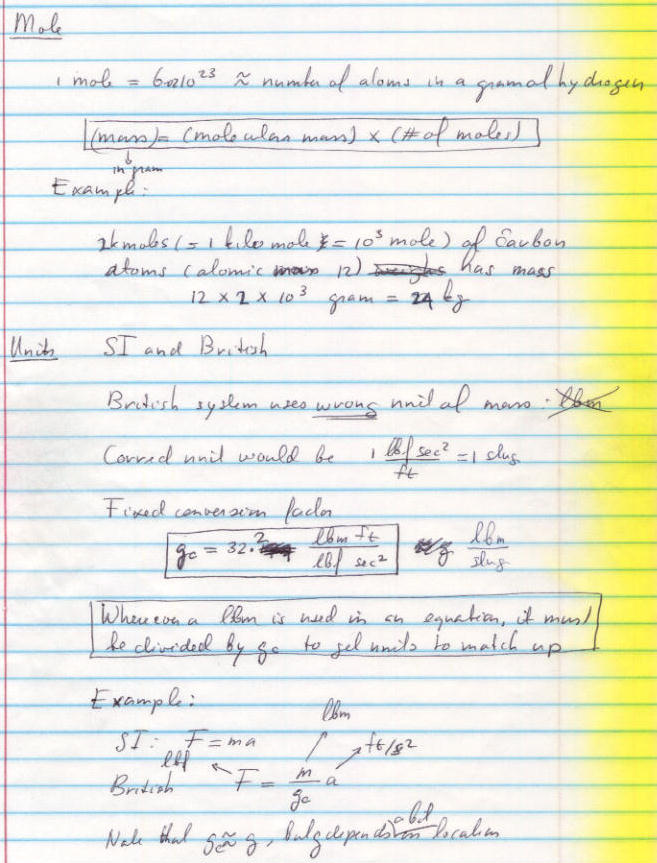 Mole
1 mole = 6.02 10^23 ≈ number of atoms in a gram of hydrogen
(mass) = (molecular mass) × (# of moles)
in gram
Example:
2k mols (= 1 kilo mole = 10^3 mole) of Carbon
atoms (atomic mass 12) has mass
12 × 2 × 10^3 gram = 24 kg
Units SI and British
British system uses wrong unit of mass: lbm
Correct unit would be 1 lbf sec^2/ft = 1 slug
Fixed conversion factor
g_c = 32.2 lbm ft/lbf sec^2 lbm/slug
Whenever a lbm is used in an equation, it must
be divided by g_c to get units to match up
Example:
lbm
SI: F = ma ft/s^2
lbf
British F = m/g_c a
Note that g_c ≈ g, but g depends a bit on location